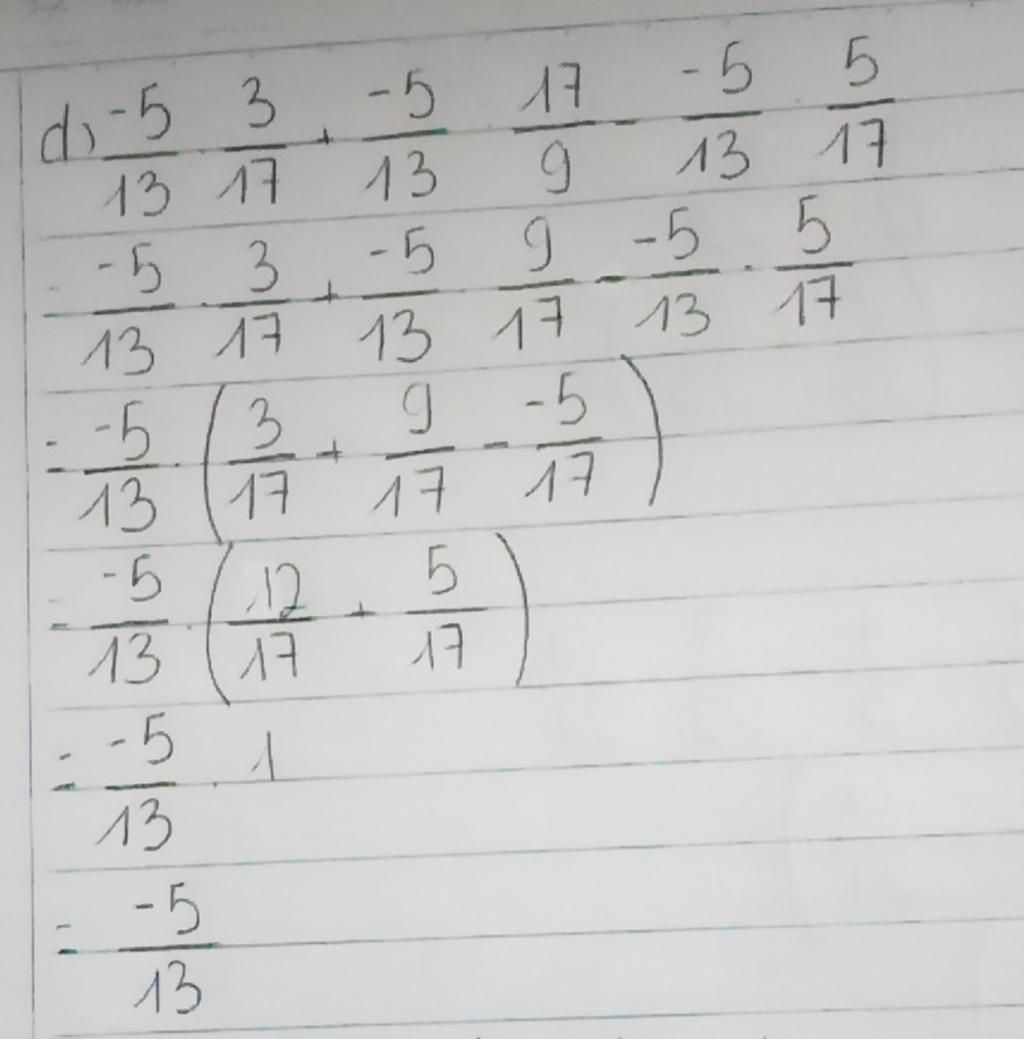 d) -5/13 . 3/17 + -5/13 . 17/9 - -5/13 . 5/17
= -5/13 . 3/17 + -5/13 . 9/17 - -5/13 . 5/17
= -5/13 . (3/17 + 9/17 - -5/17)
= -5/13 . (12/17 + 5/17)
= -5/13 . 1
= -5/13